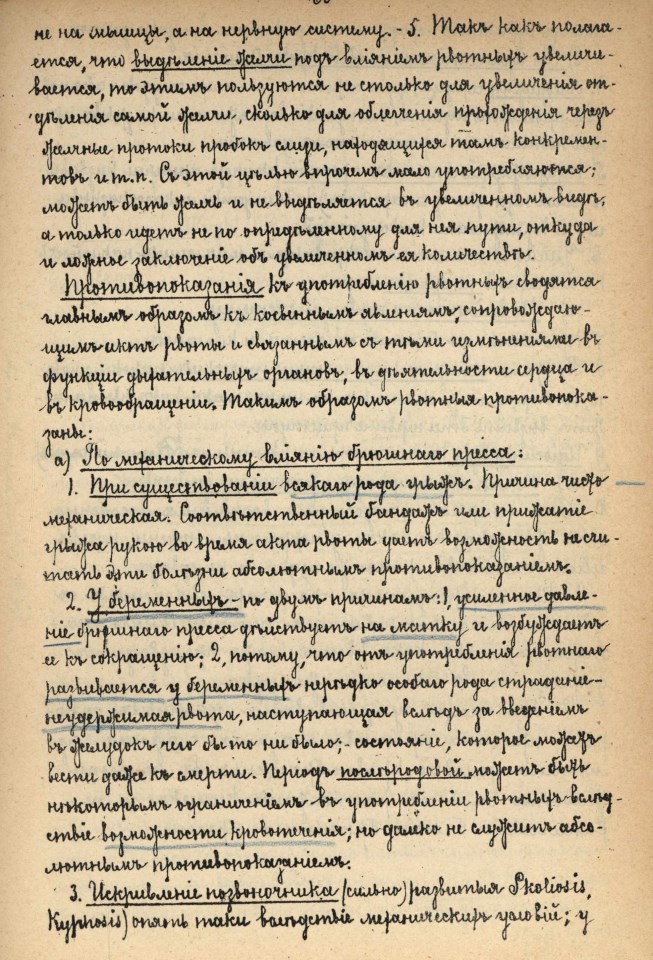 не на мышцы, а на нервную систему. - 5. Такъ какъ полага-
ется, что выдѣленіе желчи подъ вліяніемъ рвотныхъ увеличи-
вается, то этимъ пользуются не столько для увеличенія от-
дѣленія самой желчи, сколько для облегченія прохожденія черезъ
желчные протоки пробокъ слизи, находящихся тамъ конкремен-
товъ и т.п. Съ этой цѣлью впрочемъ мало употребляются;
можетъ быть желчь и не выдѣляется въ увеличенномъ видѣ,
а только идетъ не по опредѣленному для нея пути, откуда
и ложное заключеніе объ увеличенномъ ея количествѣ.
Противопоказанія къ употребленію рвотныхъ сводятся
главнымъ образомъ къ косвеннымъ явленіямъ, сопровождаю-
щимъ актъ рвоты и связаннымъ съ тѣми измѣненіями въ
функціи дыхательныхъ органовъ, въ дѣятельности сердца и
въ кровообращеніи. Такимъ образомъ рвотныя противопока-
заны:
а) По механическому вліянію брюшнаго пресса:
1. При существованіи всякаго рода грыжъ. Причина чисто
механическая. Соотвѣтственный бандажъ или прижатіе
грыжа рукою во время акта рвоты даетъ возможность не счи-
тать эти болѣзни абсолютнымъ противопоказаніемъ.
2. У беременныхъ - по двумъ причинамъ: 1, усиленное давле-
ніе брюшнаго пресса дѣйствуетъ на матку и возбуждаетъ
ее къ сокращенію; 2, потому, что отъ употребленія рвотнаго
развивается у беременныхъ нерѣдко особаго рода страданіе -
неудержимая рвота, наступающая вслѣдъ за введеніемъ
въ желудокъ чего бы то ни было; - состояніе, которое можетъ
вести даже къ смерти. Періодъ послѣродовой можетъ быть
нѣкоторымъ ограниченіемъ въ употребленіи рвотныхъ вслѣд-
ствіе возможности кровотеченія; но далеко не служитъ абсо-
лютнымъ противопоказаніемъ.
3. Искривленіе позвоночника (сильно) развитыя Skoliosis,
Kyphosis) опять таки вслѣдствіе механическихъ условій; у